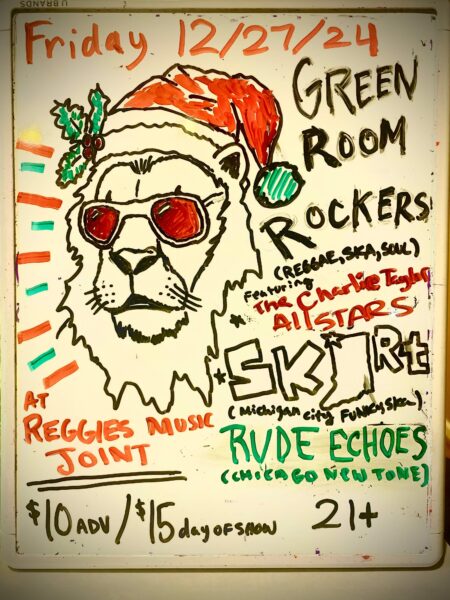 U BRANDS
Friday 12/27/24
GREEN
ROOM
ROCKERS
(REGGAE, SKA, SOUL)
Featuring
The Charlie Taylor
AllSTARS
SKIRt
(Michigan City FUNKY, Ska)
RUDE ECHOES
(CHICAGO NEW TONE)
AT
REGGIES MUSIC
JOINT
$10 ADV / $15 day OF SHOW
21+